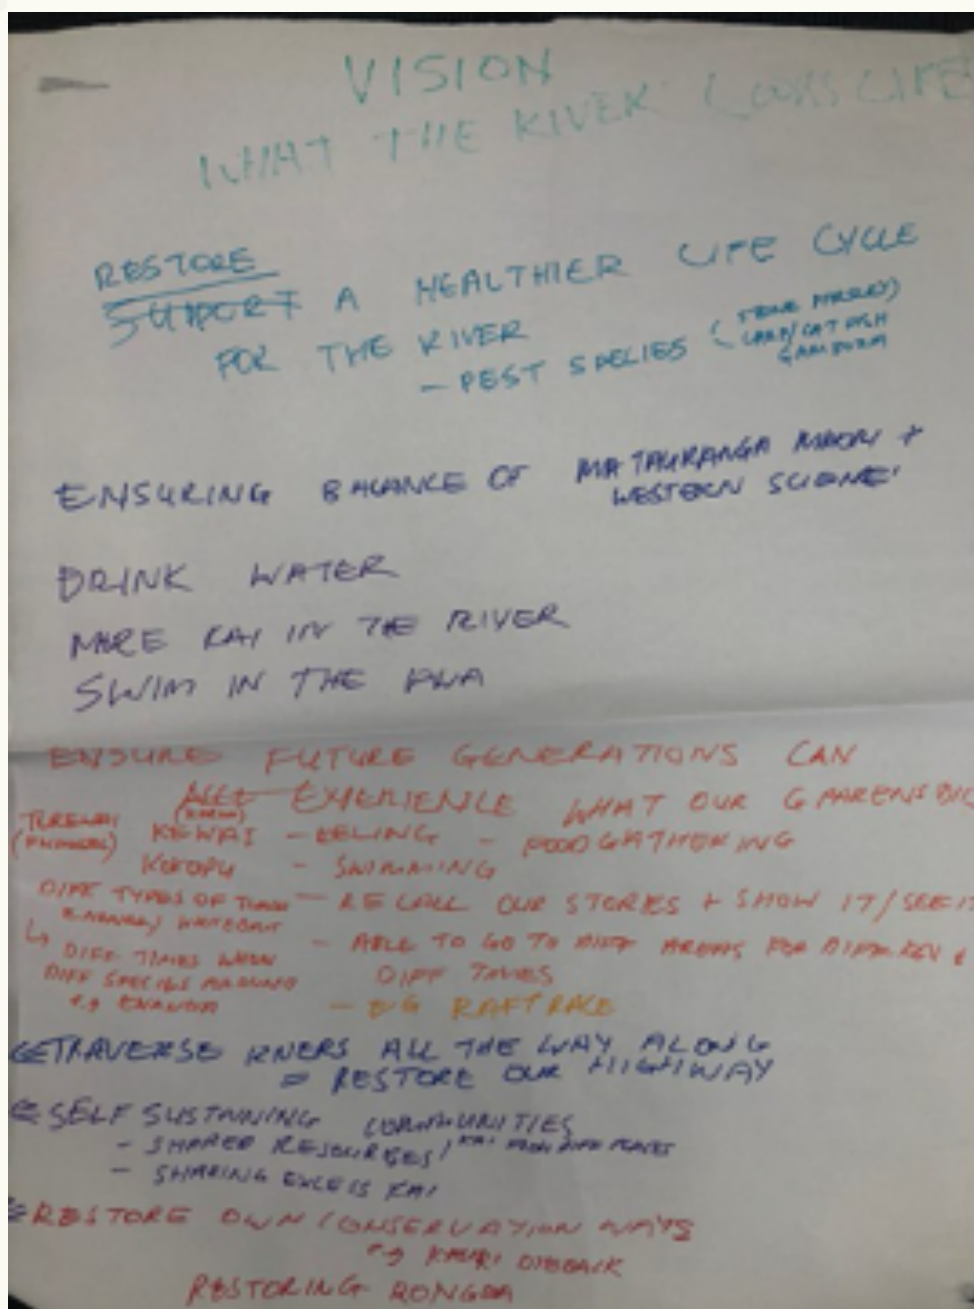 VISION
WHAT THE RIVER LOOKS LIKE
RESTORE
SUPPORT A HEALTHIER LIFE CYCLE
FOR THE RIVER
- PEST SPECIES (
CARP/CATFISH
ENSURING BALANCE OF MATAURANGA MAORI +
WESTERN SCIENCE
DRINK WATER
MORE KAI IN THE RIVER
SWIM IN THE AWA
ENSURE FUTURE GENERATIONS CAN
EXPERIENCE WHAT OUR G PARENTS DID
KEWAI - EELING - FOOD GATHERING
KOKOPU - SWIMMING
DIFF TYPES OF TUNA - RECALL OUR STORIES + SHOW IT/SEE IT
WHITEBAIT
- ABLE TO GO TO DIFF AREAS FOR DIFF
DIFF TIMES WHEN
DIFF SPECIES AROUND
DIFF TIMES
- EG RAFT RACE
TRAVERSE RIVERS ALL THE WAY ALONG
= RESTORE OUR HIGHWAY
SELF SUSTAINING COMMUNITIES
- SHARED RESOURSES / KAI FROM DIFF PLACES
- SHARING EXCESS KAI
RESTORE OWN CONSERVATION WAYS
e.g KAURI DIEBACK
RESTORING RONGOA